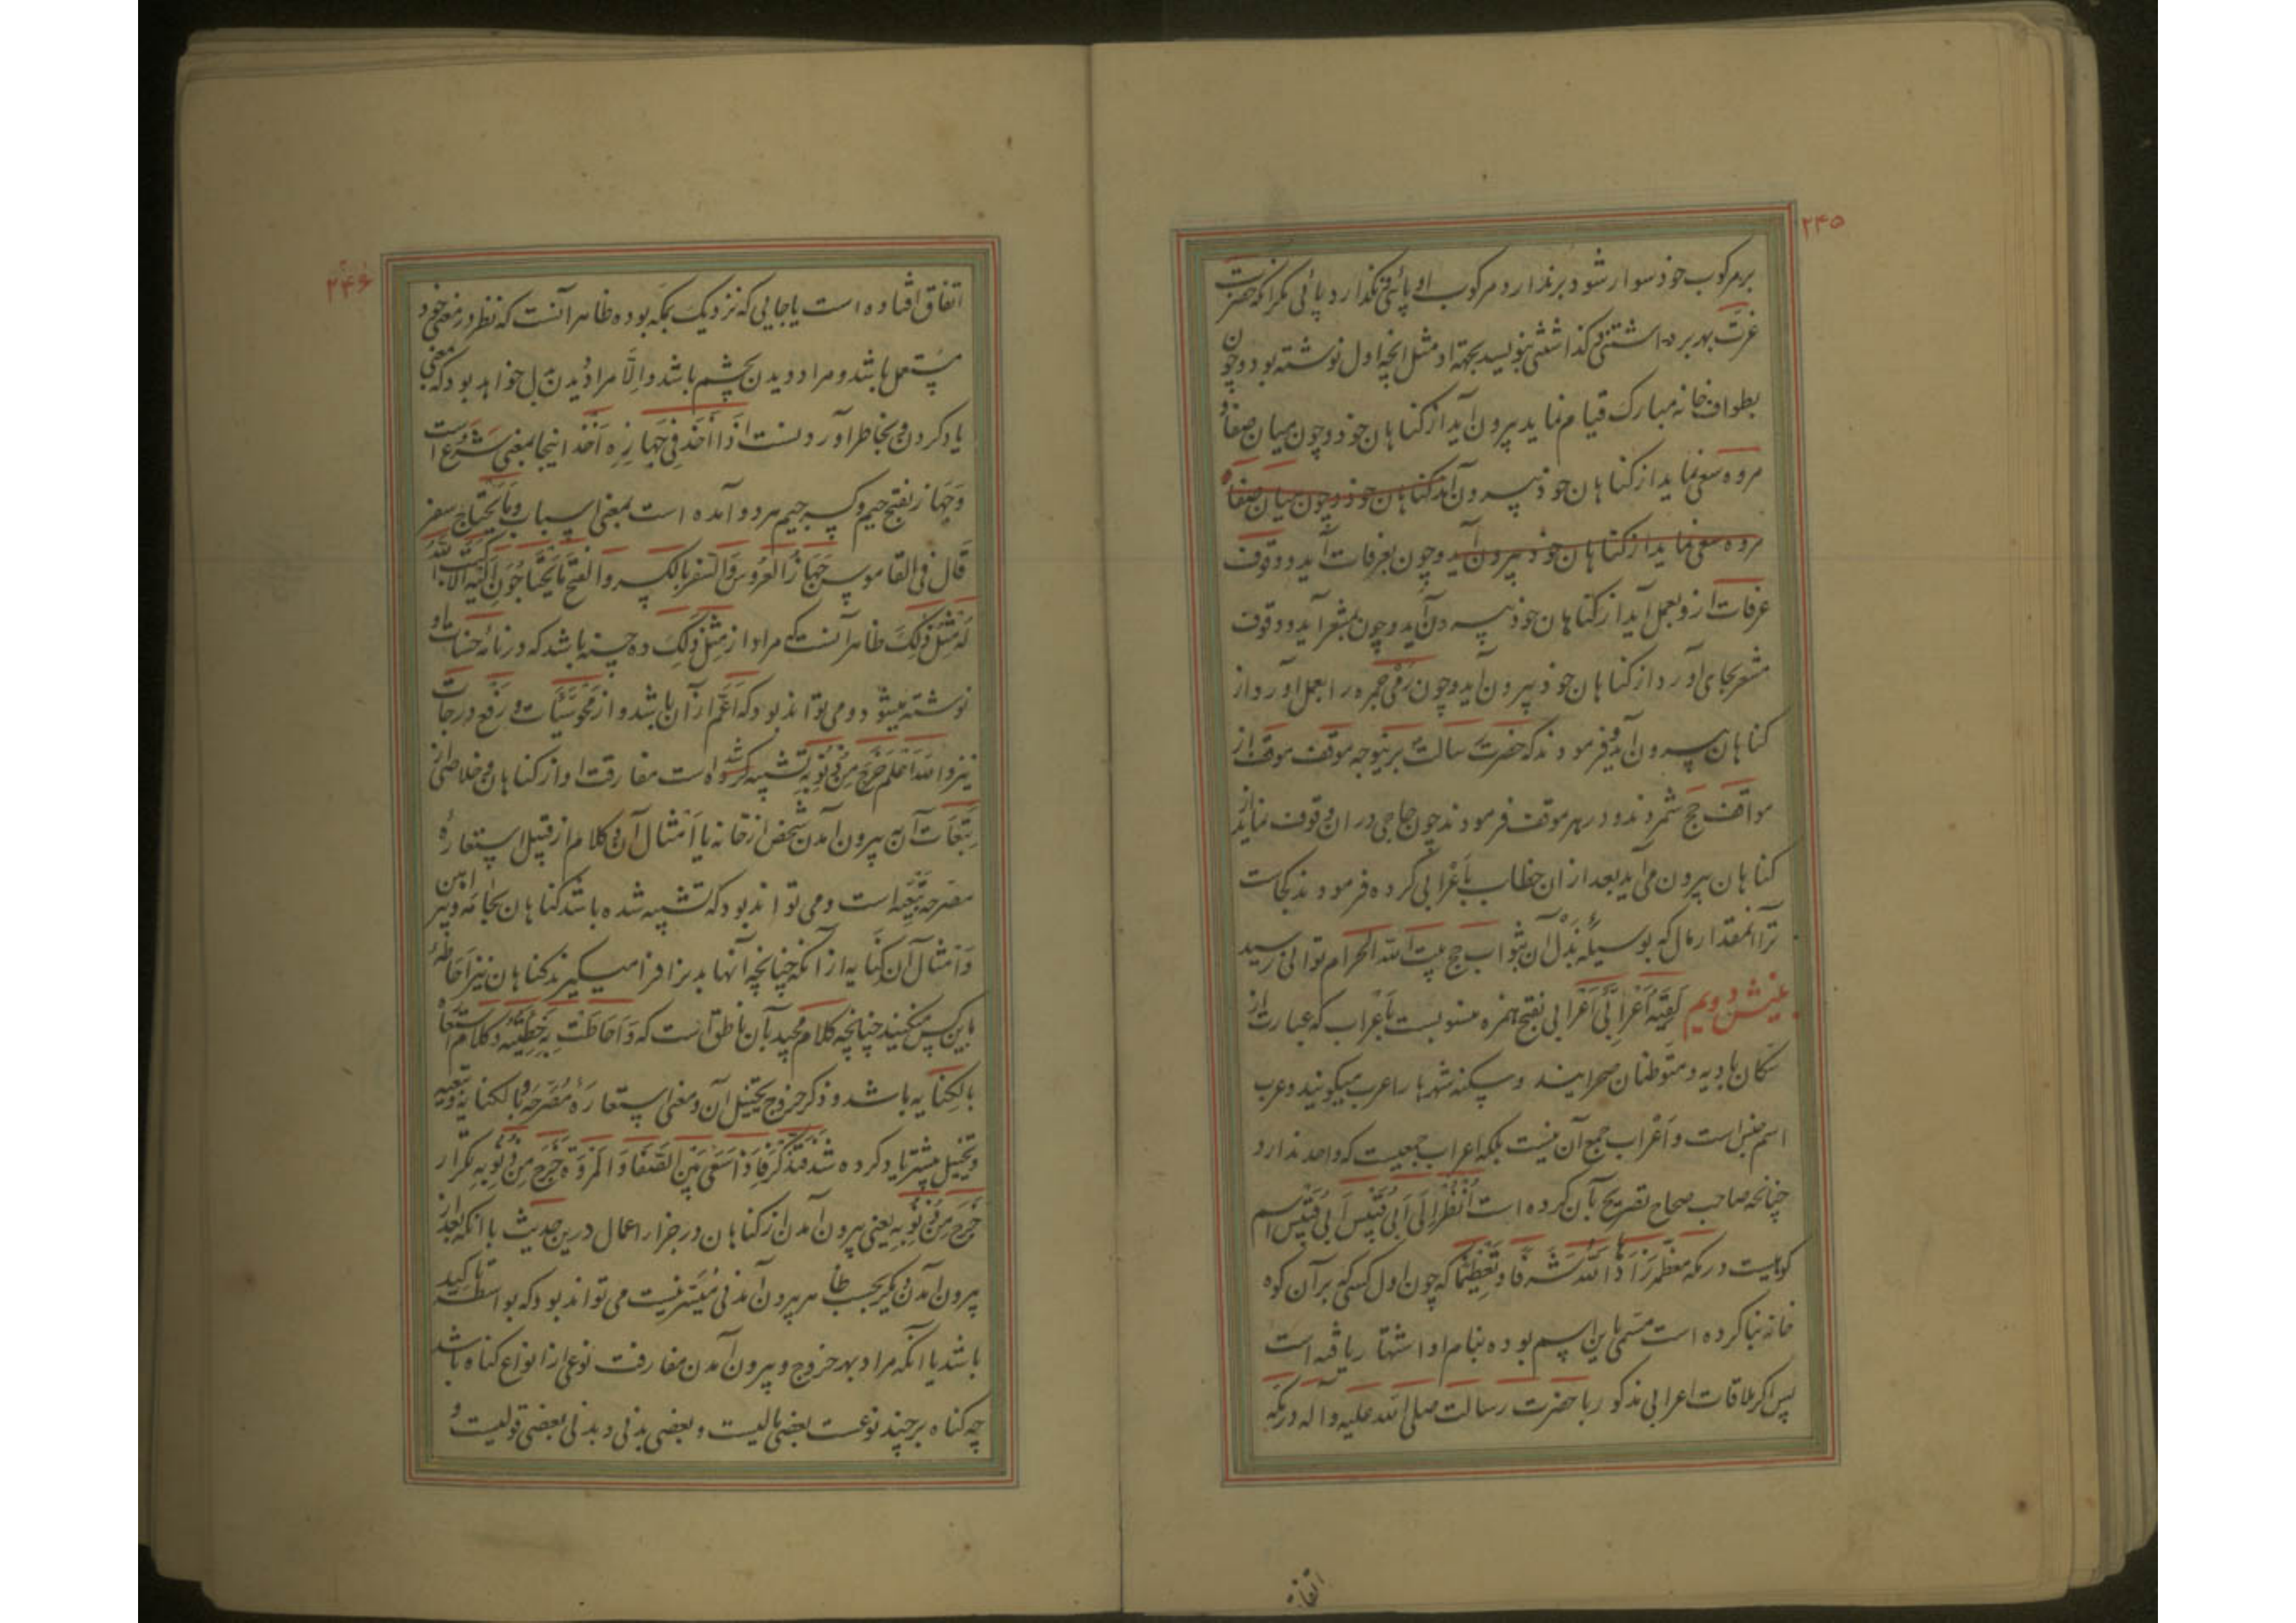 ۲۴۵
بر مرکوب خود سوار شود برندارد مرکوب او پائی و نگذارد پائی مگر آنکه حضرت
عزت بهر برداشتنی و گذاشتنی بنویسد بجهة او مثل انچه اول نوشته بود و چون
بطواف خانه مبارک قیام نماید بیرون آید از گناهان خود و چون میان صفا و
مروه سعی نماید از گناهان خود بیرون آید گناهان خود و چون میان صفا و
مروه سعی نماید از گناهان خود بیرون آید و چون بعرفات آید و وقوف
عرفات ازو بعمل آید از گناهان خود بیرون آید و چون بمشعر آید و وقوف
مشعر بجای آورد از گناهان خود بیرون آید و چون رمی جمره را بعمل آورد از
گناهان بیرون آید و فرمودند که حضرت رسالت برینوجه موقف موقف از
مواقف حج شمردند و در هر موقف فرمودند چون حاجی در ان وقوف نماید از
گناهان بیرون می‌آید بعد از ان خطاب باعرابی کرده فرمودند کجاست
ترا آنمقدار مال که بوسیلهٔ بذل آن بثواب حج بیت الله الحرام توانی رسید
بینش دویم لَقِیَهُ اَعْرابِیٌّ اَعْرابی بفتح همزه منسوبست باَعْراب که عبارت از
سکان بادیه و متوطنان صحرایند و سکنه شهرها را عرب میگویند و عرب
اسم جنس است و اَعْراب جمع آن نیست بلکه اعراب جمعیست که واحد ندارد
چنانچه صاحب صحاح تصریح بآن کرده است اُنْظُرْ اِلی اَبی قُبَیْس اَبی قُبَیْس اسم
کوهیست در مکه معظمه زادها الله شرفا و تعظیما که چون اول کسی که بر آن کوه
خانه بنا کرده است مسمی باین اسم بوده بنام او اشتهار یافته است
پس اگر ملاقات اعرابی مذکور با حضرت رسالت صلی الله علیه و آله در مکه
اتفاق
۲۴۶
اتفاق افتاده است یا جایی که نزدیک بمکه بوده ظاهر آنست که نظر در معنی خود
مستعمل باشد و مراد دیدن بچشم باشد و الا مراد دیدن بدل خواهد بود که بمعنی
یاد کردن و بخاطر آوردنست اِذا اَخَذَ فی جَهازِهِ اَخَذَ اینجا بمعنی شَرَعَ است
و جَهاز بفتح جیم و کسر جیم هر دو آمده است بمعنی اسباب و مایحتاج سفر
قال فی القاموس جَهازُ العَرُوسِ وَالسَّفَرِ بالکسر والفتح مایَحْتاجُونَ اِلَیْهِ اِلّا کَتَبَ اللهُ
لَهُ مِثْلَ ذٰلِکَ ظاهر آنست که مراد از مِثْلَ ذٰلِکَ ده حسنه باشد که در نامهٔ حسنات او
نوشته میشود و می‌تواند بود که اَعَمّ از آن باشد و از مَحْو سَیِّئات و رَفْع درجات
نیز والله اعلم خَرَجَ مِنْ ذُنُوبِهِ تشبیه کرده شده است مفارقت او از گناهان و خلاصی از
تَبِعات آن به بیرون آمدن شخص از خانه یا اَمْثال آن و کلام از قبیل استعارهٔ
مصرحهٔ تَبَعِیّه است و می‌تواند بود که تشبیه شده باشد گناهان بجامه و پیراهن
و اَمْثال آن کنایه از آنکه چنانچه آنها بدن را فرا میگیرند گناهان نیز احاطهٔ
باین کس میکنند چنانچه کلام مجید بآن ناطق است که وَاَحاطَتْ بِهِ خَطِیئَتُهُ و کلام استعاره
بالکنایه باشد و ذکر خروج تخییل آن و معنی استعارهٔ مُصَرّحه و بالکنایه و تبعیه
و تخییل پیشتر یاد کرده شد فَتَذَکَّرْ فَاِذا سَعی بَیْنَ الصَّفا وَالْمَرْوَةِ خَرَجَ مِنْ ذُنُوبِهِ تکرار
خَرَجَ مِنْ ذُنُوبِهِ یعنی بیرون آمدن از گناهان در جزاء اعمال درین حدیث با انکه بعد از
بیرون آمدن دیگر بحسب ظاهر بیرون آمدنی مُیَسّر نیست می‌تواند بود که بواسطه تاکید
باشد یا آنکه مراد بهر خروج و بیرون آمدن مفارقت نوعی از انواع گناه باشد
چه گناه بر چند نوعست بعضی مالیست و بعضی بدنی و بدنی بعضی قولیست و